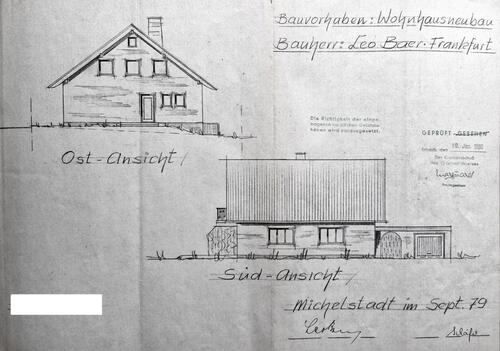 Bauvorhaben: Wohnhausneubau
Bauherr: Leo Baer - Frankfurt
Die Richtigkeit der einge-
tragenen
wird vorausgesetzt.
GEPRÜFT - GESEHEN
Erbach, den 10. Jan. 1980
Der Kreisausschuß
des Odenwaldkreises
Ost-Ansicht
Süd-Ansicht
Michelstadt im Sept. 79